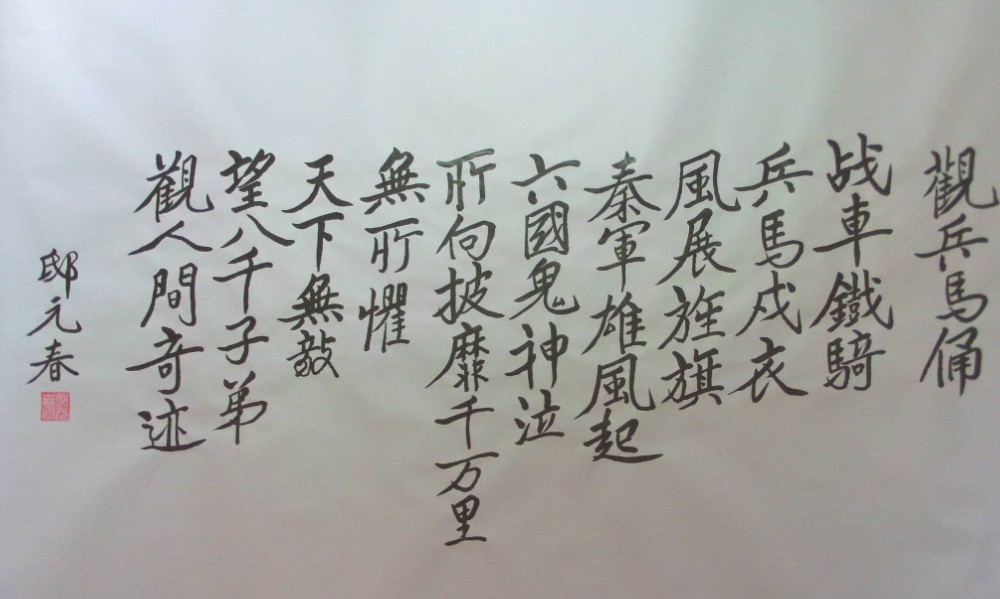 觀兵馬俑
战車鐵騎
兵馬戎衣
風展旌旗
秦軍雄風起
六國鬼神泣
所向披靡千万里
無所懼
天下無敵
望八千子弟
觀人間奇迹
邸元春